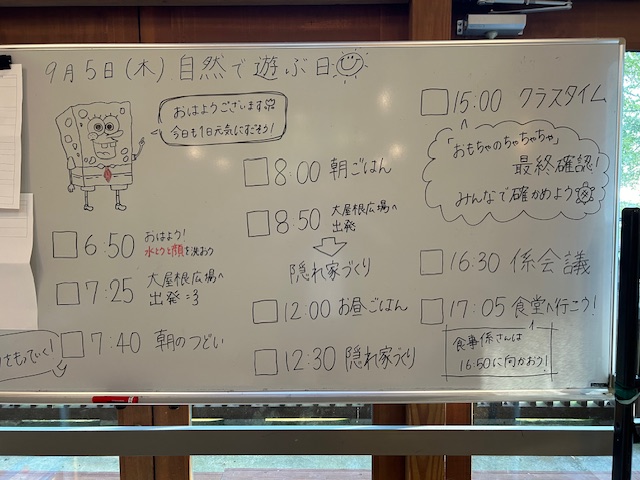 9月5日(木) 自然で遊ぶ日
おはようございます
今日も1日元気にすごそう!
6:50 おはよう!
水とうと顔を洗おう
7:25 大屋根広場へ
出発
7:40 朝のつどい
をもっていく!
8:00 朝ごはん
8:50 大屋根広場へ
出発
隠れ家づくり
12:00 お昼ごはん
12:30 隠れ家づくり
15:00 クラスタイム
「おもちゃのちゃちゃちゃ」
最終確認!
みんなで確かめよう
16:30 係会議
17:05 食堂へ行こう!
食事係さんは
16:50に向かおう!